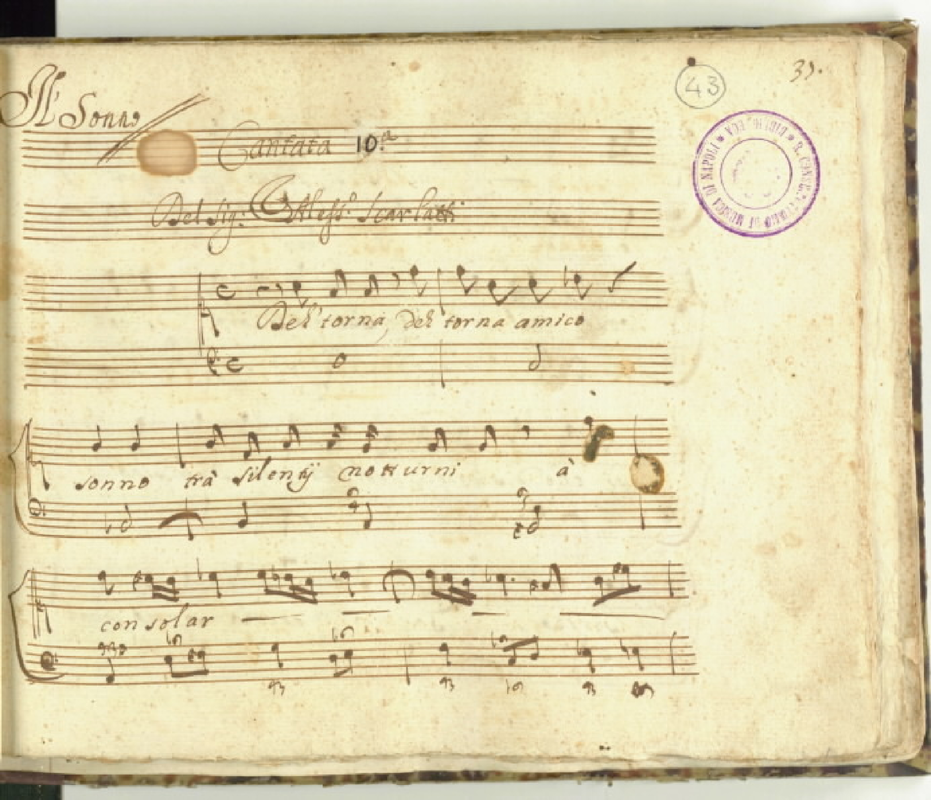 Il Sonno
43
35.
Cantata 10.a
Del Sig: Aless.o Scarlatti
R. CONSERVATORIO DI MUSICA DI NAPOLI * BIBLIOTECA *
Deh torna, deh torna amico
sonno trà silentij notturni à
consolar